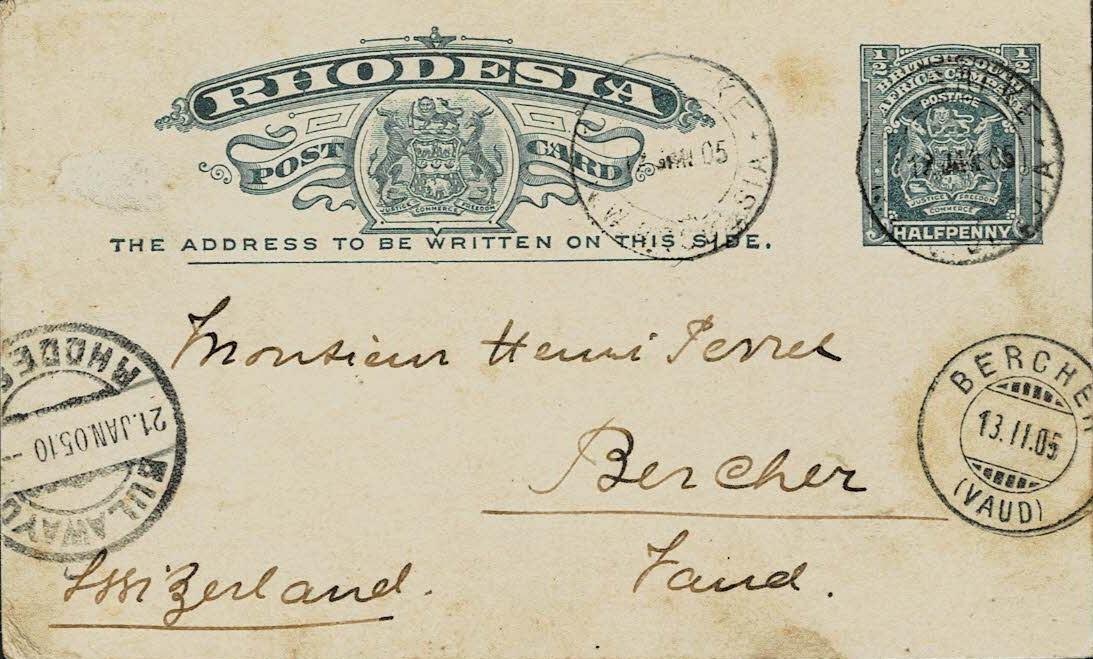 RHODESIA
POST CARD
JUSTICE COMMERCE FREEDOM
THE ADDRESS TO BE WRITTEN ON THIS SIDE.
JAN 05
1/2 1/2
BRITISH SOUTH
AFRICA COMPANY
POSTAGE
JUSTICE FREEDOM
COMMERCE
HALFPENNY
17 JAN 05
Monsieur Henri Perret
Bercher
Vaud.
Switzerland.
BULAWAYO
21.JAN.05.10 -
BERCHER
13.II.05
(VAUD)